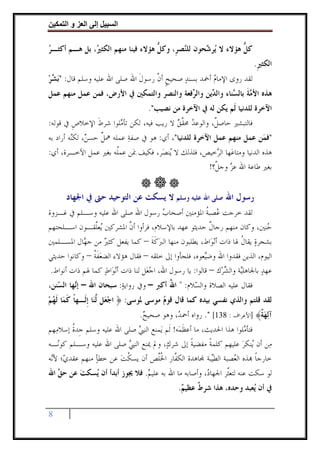 السبيل إلى العز و التمكين
كلُّ هؤلاء لا يُرشَّحونَ للنَّصرِ، وكلُّ هؤلاء فينا منهم الكثيرُ، بل هـــم أكثـــرُ
الكثيرِ.
لقد روى الإمامُ أحمد بسندٍ صحيحٍ أنَّ رسولَ الله صلى الله عليه وسلم قال: "بَشِّرْ
هذه الأمَّةَ بالسَّناءِ والدِّينِ والرِّفعة والنصرِ والتمكينِ في الأرضِ، فمن عمل منهم عمل
الآخرة للدنيا لَم يكن له في الآخرةِ من نصيب".
فالتبشير حاصلٌ، والوعدُ محقَّقٌ لا ريب فيه، لكن تأمَّلوا شرطَ الإخلاصِ في قوله:
"فمَن عمل منهم عمل الآخرة للدنيا"، أي: هو في صفةِ عملِه عملٌ حسنٌ، لكنَّه أراد به
هذه الدنيا ومتاعَها الرَّخيص، فلذلك لا يُنصَرُ، فكيف بمَن عملُه بغير عمل الآخـــرة، أي:
بغير طاعة الله عزَّ وجلَّ؟!
رسول الله صلى الله عليه وسلم لا يسكت عن التوحيد حتى في الجهاد
لقد خرجت عُصبةُ المؤمنين أصحابُ رسول الله صلى الله عليه وســـلم في غـــزوة
حُنين، وكان منهم رجالٌ حديثو عهدٍ بالإسلامِ، فرأوا أنَّ المشركين يُعلِّقـــون أسـلحتهم
بشجرةٍ يقالُ لها ذات أنْواط، يطلبون منها البركةَ – كما يفعل كثيرٌ من جهَّال المســلمين
اليوم، الذين فقدوا اللهَ وضيَّعوه، فلجأوا إلى خلقه – فقال هؤلاء الضعَفَةُ – وكانوا حديثي
عهدٍ بالجاهليَّةِ والشِّركِ – قالوا: يا رسول الله، اجْعَل لنا ذاتَ أنْواطٍ كما لهم ذات أنواط.
فقال عليه الصلاة والسَّلام: " اللهُ أكبر – وفي رواية: سبحان الله – إنَّها السُّنن،
لقد قلتم والذي نفسي بيده كما قال قومُ موسى لموسى: ﴿ اجْعَل لَّنَا إِلَـهًا كَمَا لَهُمْ
آلِهَةٌ﴾ [الأعراف : 138] ". رواه أحمدُ، وهو صحيحٌ.
فتأمَّلوا هذا الحديث، ما أعظمَه! لَم يَمنع النبيَّ صلى الله عليه وسلم جدةُ إسلامِهم
مِن أن يُنكِرَ عليهم كلمةً مفضيةً إلى شركٍ، و لم يمنع النبيَّ صلى الله عليه وســـلم كونُـــه
خارجاً بهذه العُصبة الطيِّبة لمجاهدة الكفَّار الخُلَّصِ أن يَسكُتَ عن خطأٍ منهم عقديٍّ؛ لأنَّه
لو سكت عنه لتعثَّر الجهادُ، وأصابه ما الله به عليمٌ. فلا يجوز أبداً أن يُسكتَ عن حقِّ الله
في أن يُعبد وحده، هذا شرطٌ عظيمٌ.
8